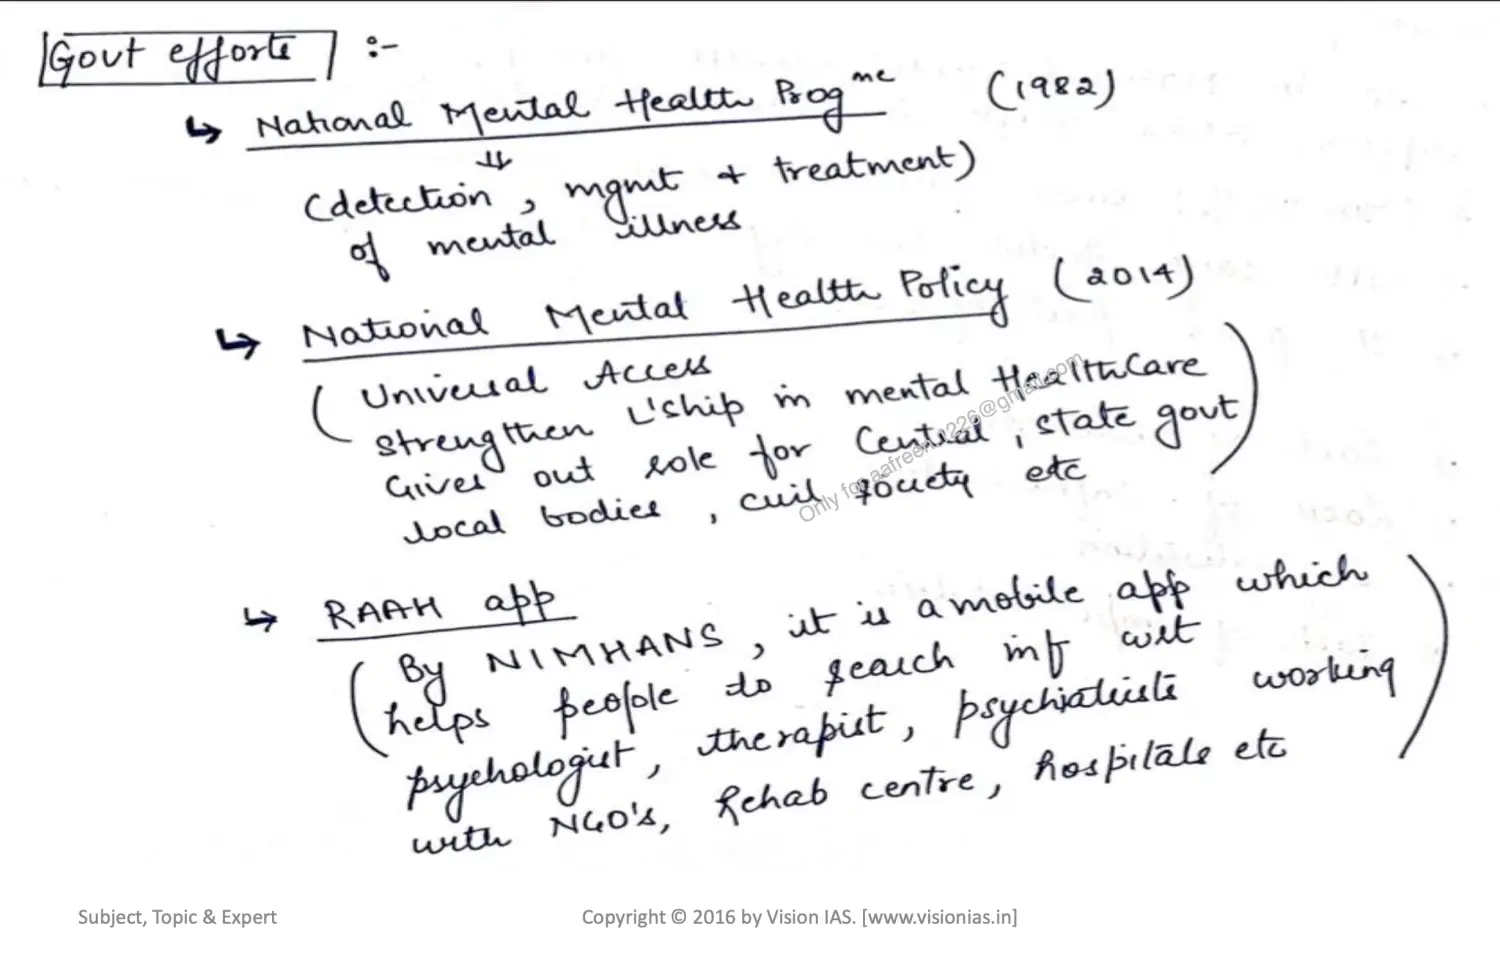 Govt efforts :-
↳ National Mental Health Prog^me (1982)
⇓
(detection, mgmt + treatment)
of mental illness
↳ National Mental Health Policy (2014)
(Universal Access
strengthen L'ship in mental HealthCare
Gives out role for Central, state govt
local bodies, civil society etc)
↳ RAAH app
(By NIMHANS, it is a mobile app which
helps people to search inf wrt
psychologist, therapist, psychiatrists working
with NGO's, Rehab centre, hospitals etc)
Subject, Topic & Expert
Copyright © 2016 by Vision IAS. [www.visionias.in]